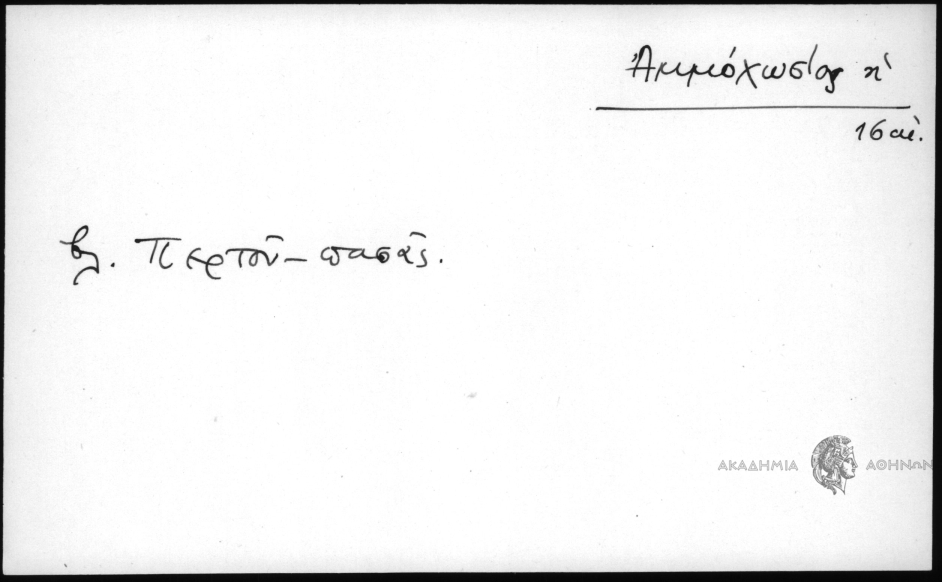 Ἀμμόχωστος ἡ
16 αἰ.
βλ. Περτοῦ - πασᾶς.
ΑΚΑΔΗΜΙΑ ΑΘΗΝΩΝ